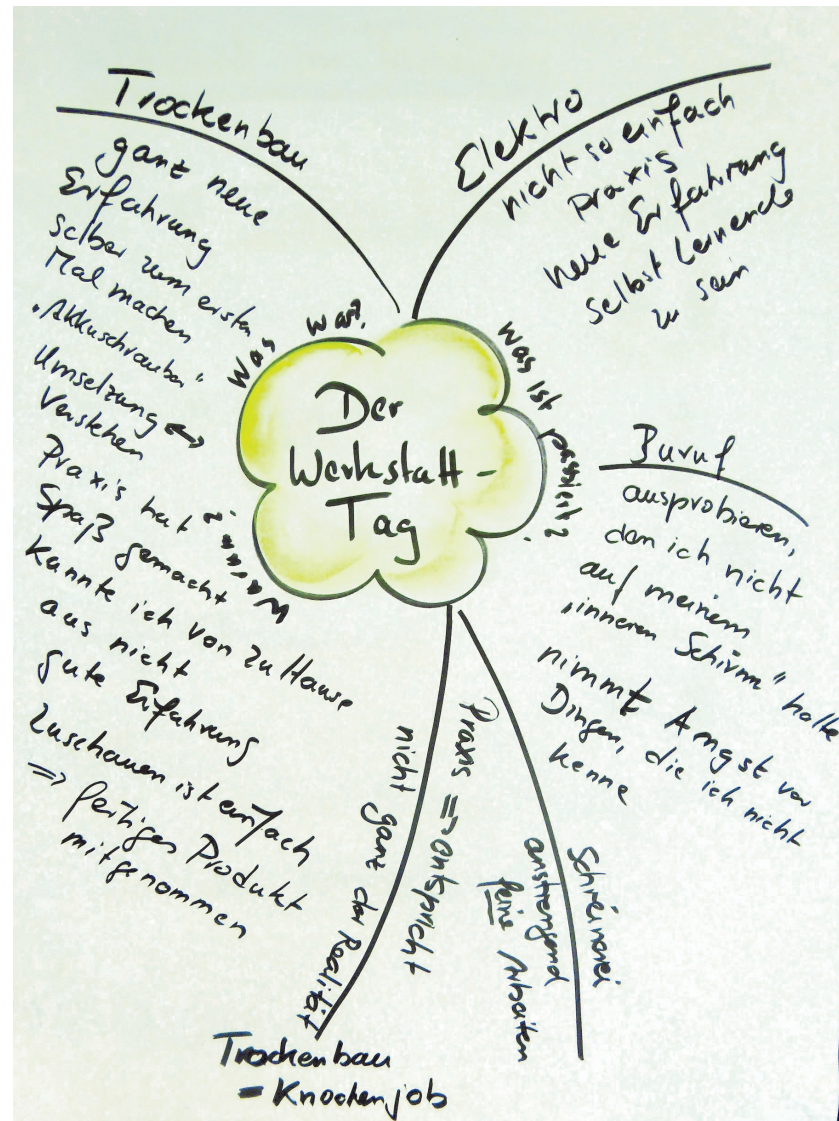 Der
Werkstatt-
Tag
Was war?
Was ist passiert?
Warum?
Trockenbau
ganz neue
Erfahrung
selber zum ersten
Mal machen
"Akkuschrauber"
Umsetzung ↔
Verstehen
Praxis hat
Spaß gemacht
Kannte ich von zu Hause
aus nicht
gute Erfahrung
Zuschauen ist einfach
⇒ fertiges Produkt
mitgenommen
Elektro
nicht so einfach
Praxis
neue Erfahrung
selbst Lernende
zu sein
Beruf
ausprobieren,
den ich nicht
auf meinem
"inneren Schirm" hatte
nimmt Angst vor
Dingen, die ich nicht
kenne
Schreinerei
anstrengend
feine Arbeiten
Praxis ⇒ entspricht
nicht ganz der Realität
Trockenbau
= Knochenjob